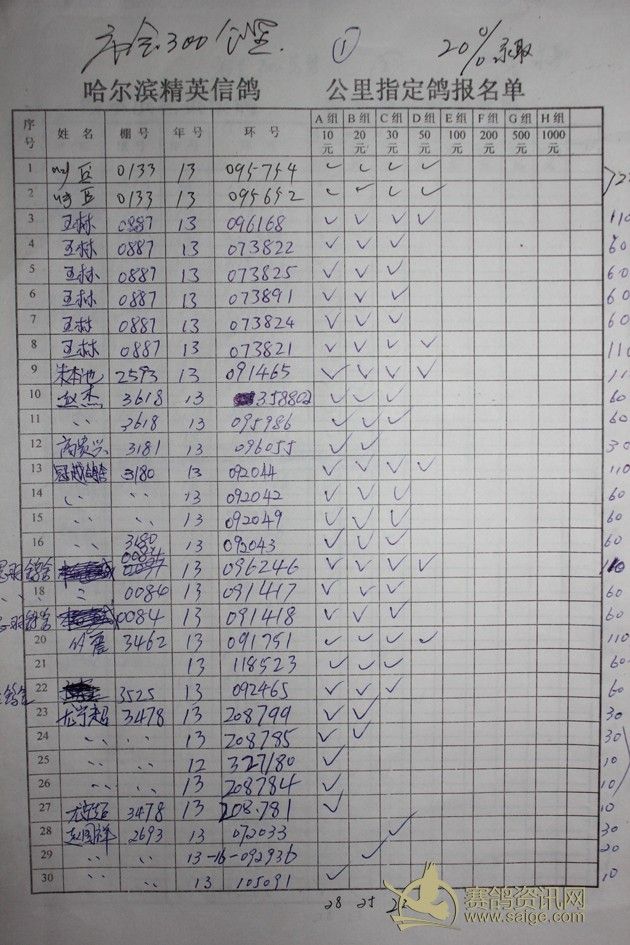 300公里 ① 20% 录取
哈尔滨精英信鸽 公里指定鸽报名单
序号 姓名 棚号 年号 环号 A组10元 B组20元 C组30元 D组50元 E组100元 F组200元 G组500元 H组1000元
1 0133 13 095754 ✓ ✓ ✓ ✓
2 0133 13 095652 ✓ ✓ ✓ ✓
3 王林 0887 13 096168 ✓ ✓ ✓ ✓ 110
4 王林 0887 13 073822 ✓ ✓ ✓ 60
5 王林 0887 13 073825 ✓ ✓ ✓ 60
6 王林 0887 13 073891 ✓ ✓ ✓ 60
7 王林 0887 13 073824 ✓ ✓ ✓ 60
8 王林 0887 13 073821 ✓ ✓ ✓ ✓ 110
9 2593 13 091465 ✓ ✓ ✓ ✓
10 赵杰 3618 13 358802 ✓ ✓ ✓ 60
11 〃 3618 13 095986 ✓ ✓ ✓ 60
12 高贵兴 3181 13 096055 ✓ ✓ 30
13 冠成鸽舍 3180 13 092044 ✓ ✓ ✓ ✓ 110
14 〃 〃 13 092042 ✓ ✓ ✓ 60
15 〃 〃 13 092049 ✓ ✓ ✓ 60
16 〃 3180 13 092043 ✓ ✓ ✓ 60
鸽舍 0084 13 096246 ✓ ✓ ✓ ✓ 110
18 〃 0084 13 091417 ✓ ✓ ✓ 60
鸽舍 0084 13 091418 ✓ ✓ ✓ 60
20 3462 13 091751 ✓ ✓ ✓ ✓ 110
21 13 118523 ✓ ✓ ✓ 60
22 3525 13 092465 ✓ ✓ ✓ 60
23 3478 13 208799 ✓ ✓ 30
24 〃 〃 13 208785 ✓ ✓ 30
25 〃 〃 12 327180 ✓ 10
26 〃 〃 13 208784 ✓ 10
27 3478 13 208781 ✓ 10
28 赵国祥 2693 13 072033 ✓ 30
29 〃 〃 13-16-092936 ✓ 20
30 〃 〃 13 105091 ✓ 10
28 25
赛鸽资讯网
www.saige.com